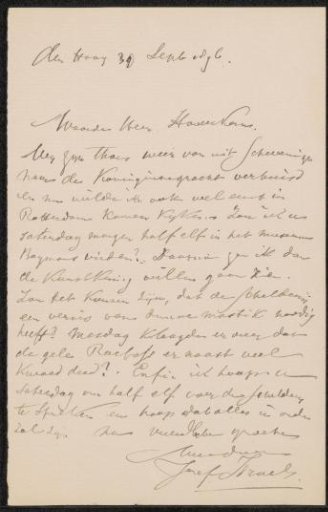 den Haag 30 Sept 1896.
Waarde Heer Haverkorn.
Wij zijn thans weer van uit Scheveningen
naar de Koninginnegracht verhuisd
en nu wilde ik ook wel eens in
Rotterdam komen kijken. Zou ik u
Saturdag morgen half elf in het museum
Boymans vinden? Daarin zou ik dan
de willen gaan zien.
Zou het kunnen zijn, dat de schilderij
een vernis van dunne mastik noodig
heeft? Mesdag klaagde er over dat
de gele er naast veel
kwaad deed? Enfin ik hoop u
Saturdag om half elf voor de schilderij
te spreken en hoop dat alles in orde
zal zijn. na vriendelijke groeten
Jozef Israëls